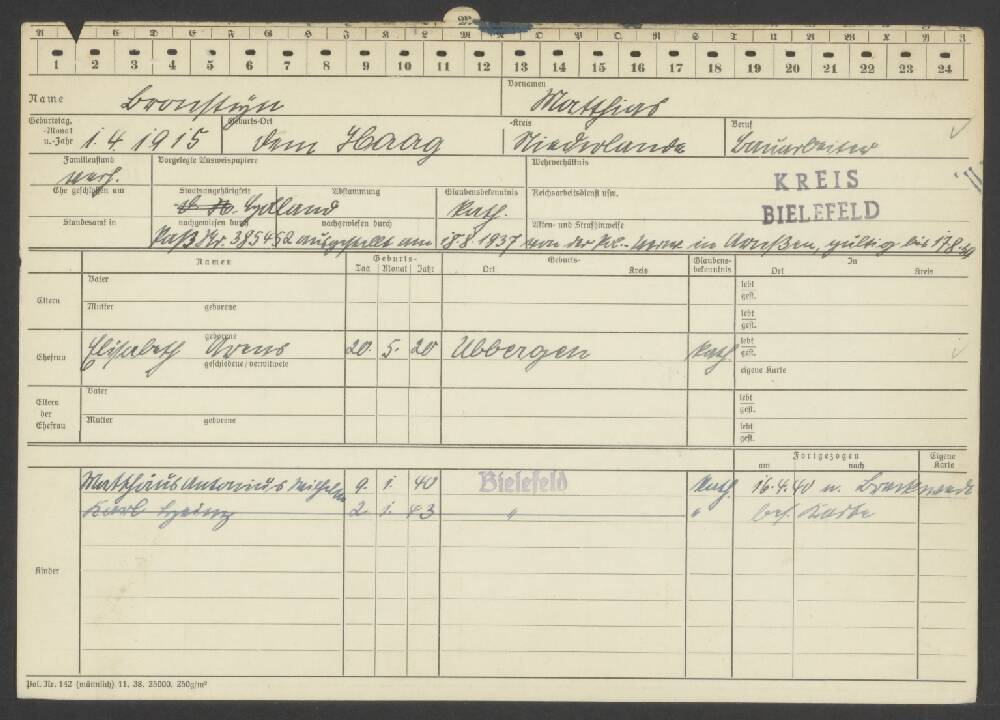 A B C D E F G H J K L M N O P Q R S T U V W X Y Z
1 2 3 4 5 6 7 8 9 10 11 12 13 14 15 16 17 18 19 20 21 22 23 24
Name Bronstijn Vornamen Matthias
Geburtstag, -Monat u.-Jahr 1.4.1915 Geburts-Ort dem Haag -Kreis Niederlande Beruf Bauarbeiter
Familienstand verh. Vorgelegte Ausweispapiere Wehrverhältnis
KREIS
BIELEFELD
Ehe geschlossen am Staatsangehörigkeit Abstammung Glaubensbekenntnis kath. Reichsarbeitsdienst usw.
Standesamt in nachgewiesen durch nachgewiesen durch Akten- und Strafhinweise
Paß Nr. 385452 ausgestellt am 18.8.1937 von der in gültig bis
Namen Geburts- Tag Monat Jahr Geburts- Ort Kreis Glaubensbekenntnis In Ort Kreis
Eltern Vater lebt gest.
Mutter geborene lebt gest.
Ehefrau Elisabeth geborene Arens 20. 5. 20 Ubbergen kath. lebt gest.
geschiedene/verwitwete eigene Karte
Eltern der Ehefrau Vater lebt gest.
Mutter geborene lebt gest.
Fortgezogen am nach Eigene Karte
Matthäus Antonius Wilhelm 9. 1. 40 Bielefeld kath. 16.4.40 n. Brackwede
Karl Heinz 2. 1. 43 " " bes. Karte
Kinder
Pol. Nr. 142 (männlich) 11. 38. 25000, 250g/m²